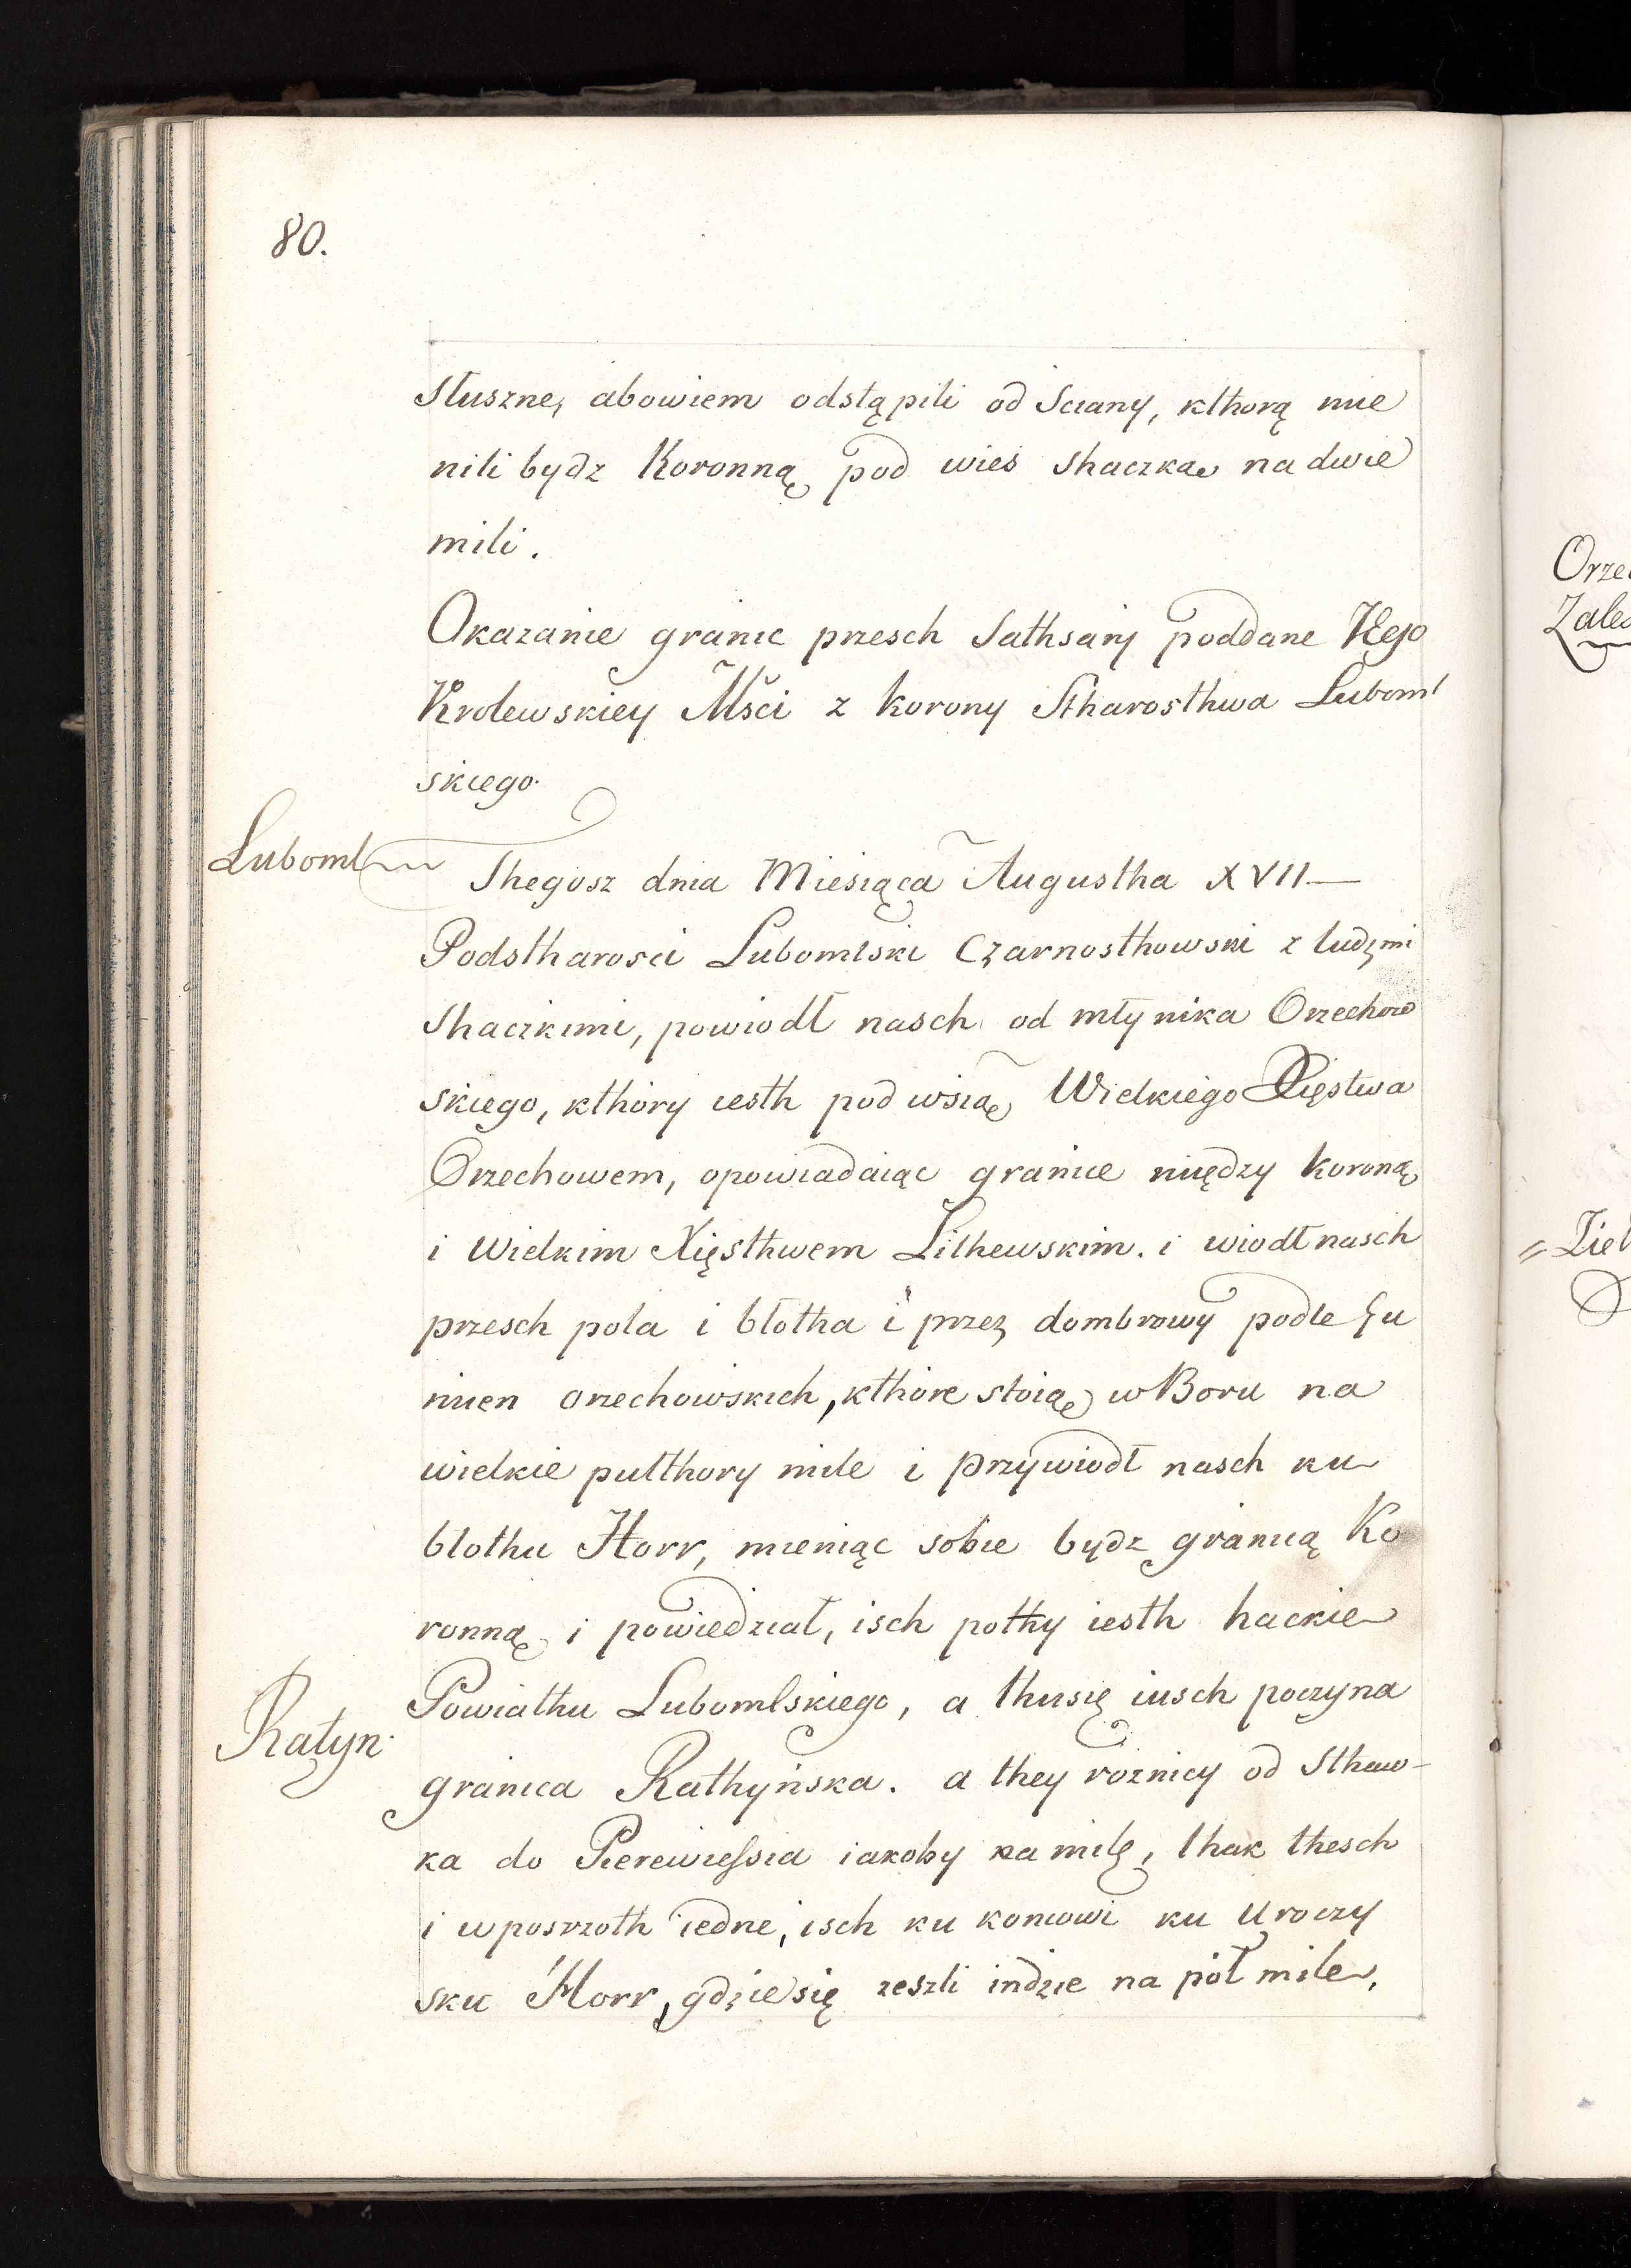 80.
słuszne, abowiem odstąpili od sciany, kthorą mie
nili bydz Koronną pod wies Shaczka na dwie
mili.
Okazanie granic przesch Sathsany poddane
Krolewskiey Mści z korony Stharosthwa Luboml
skiego.
Luboml
Thegosz dnia Miesiąca Augustha XVII—
Podstharosci Lubomlski Czarnosthowski z ludzmi
Shaczkimi, powiodł nasch od młynika Orzechow
skiego, kthory iesth pod wsią Wielkiego Xięstwa
Orzechowem, opowiadaiąc granice między koroną
i Wielkim Xięsthwem Lithewskim. i wiodł nasch
przesch pola i błotha i przez dombrowy podle Gu
mien orzechowskich, kthore stoią w Boru na
wielkie pulthory mile i przywiodł nasch ku
błothu Horr, mieniąc sobie bydz granicą Ko
ronną i powiedział, isch pothy iesth hackie
Powiathu Lubomlskiego, a thu się iusch poczyna
Ratyn.
granica Rathyńska. a they roznicy od Sthaw-
ka do Pierewiessia iakoby na milę, thak thesch
i wposrzoth iedne, isch ku koncowi ku Uroczy
sku Horr, gdzie się zeszli indzie na pół mile,
Orzec
Zales